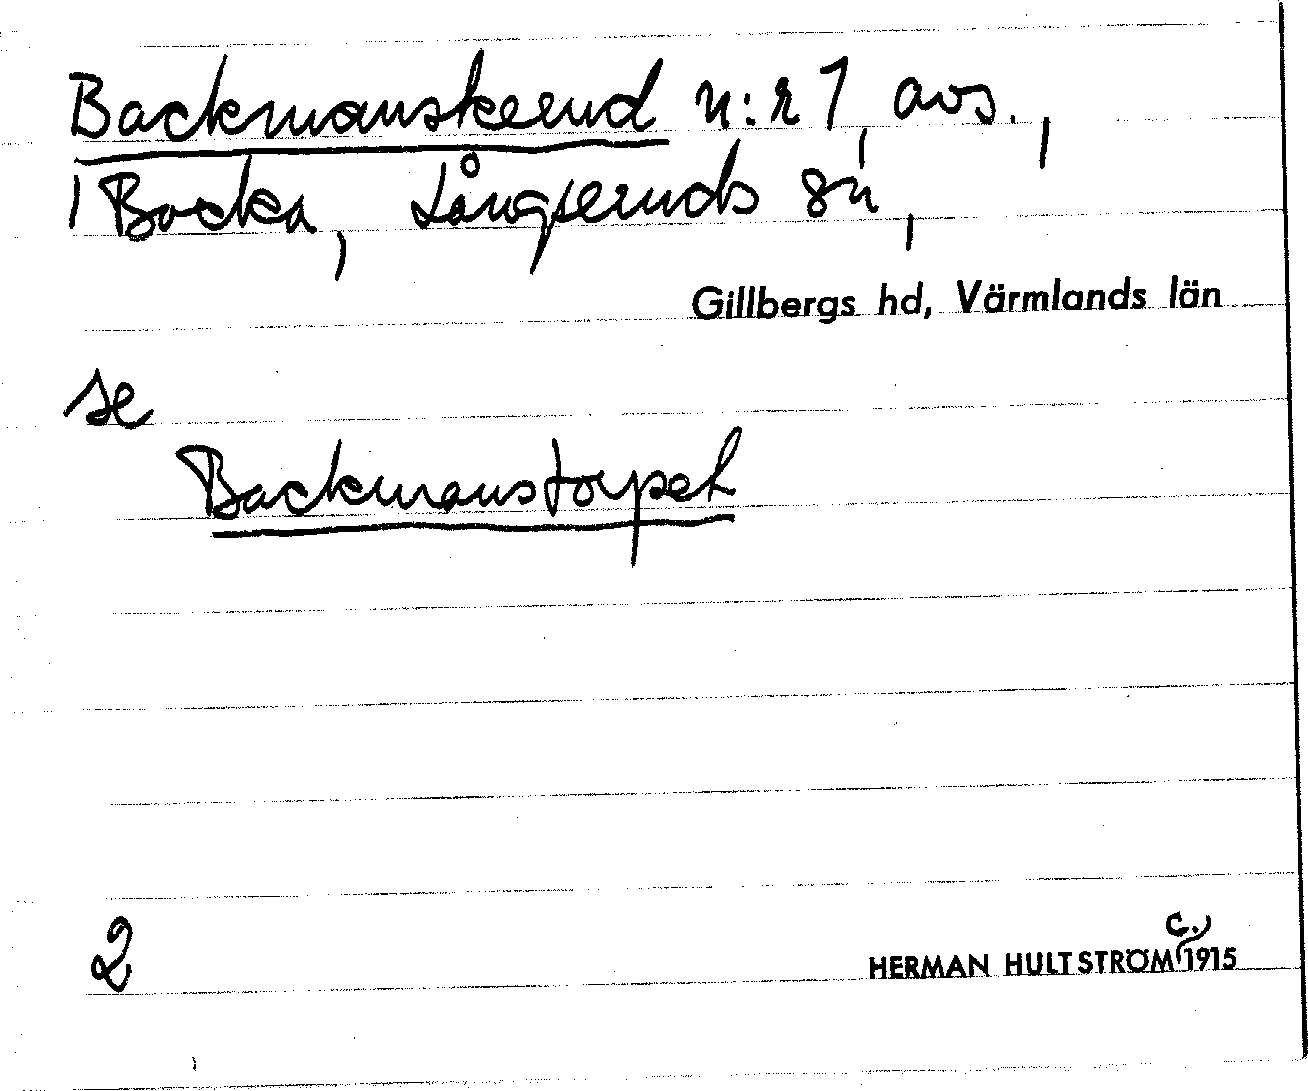 Backmanskerud n:r 1, avs.,
1 Backa, Långseruds sn,
Gillbergs hd, Värmlands län
se
Backmanstorpet
2
HERMAN HULTSTRÖM c. 1915